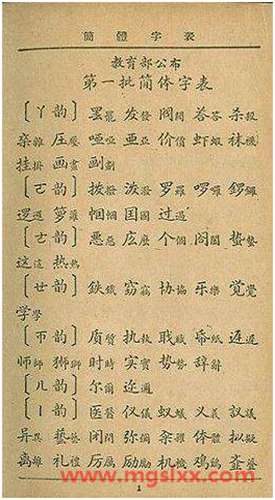 簡體字表
教育部公布
第一批简体字表
〔ㄚ韵〕罢罷 发發 阀閥 荅答 杀殺
杂雜 压壓 哑啞 亚亞 价價 虾蝦 袜襪
挂掛 画畫 劃
〔ㄛ韵〕拨撥 泼潑 罗羅 啰囉 鑼
逻邏 箩籮 帼幗 国國 过過
〔ㄜ韵〕恶惡 庅麼 个個 阁閣
这這 热熱
〔ㄝ韵〕鉄鐵 窃竊 协協 乐樂 觉覺
学學
〔ㄭ韵〕质質 执執 职職 帋紙 迟遲
师師 狮獅 时時 实實 势勢 辞辭
〔ㄦ韵〕尔爾 迩邇
〔ㄧ韵〕医醫 仪儀 蚁蟻 义義 議
异異 艺藝 闭 弥彌 籴糴 体體 拟擬
离離 礼禮 厉厲 励勵 机機 鸡雞
1
www.mgslxx.com